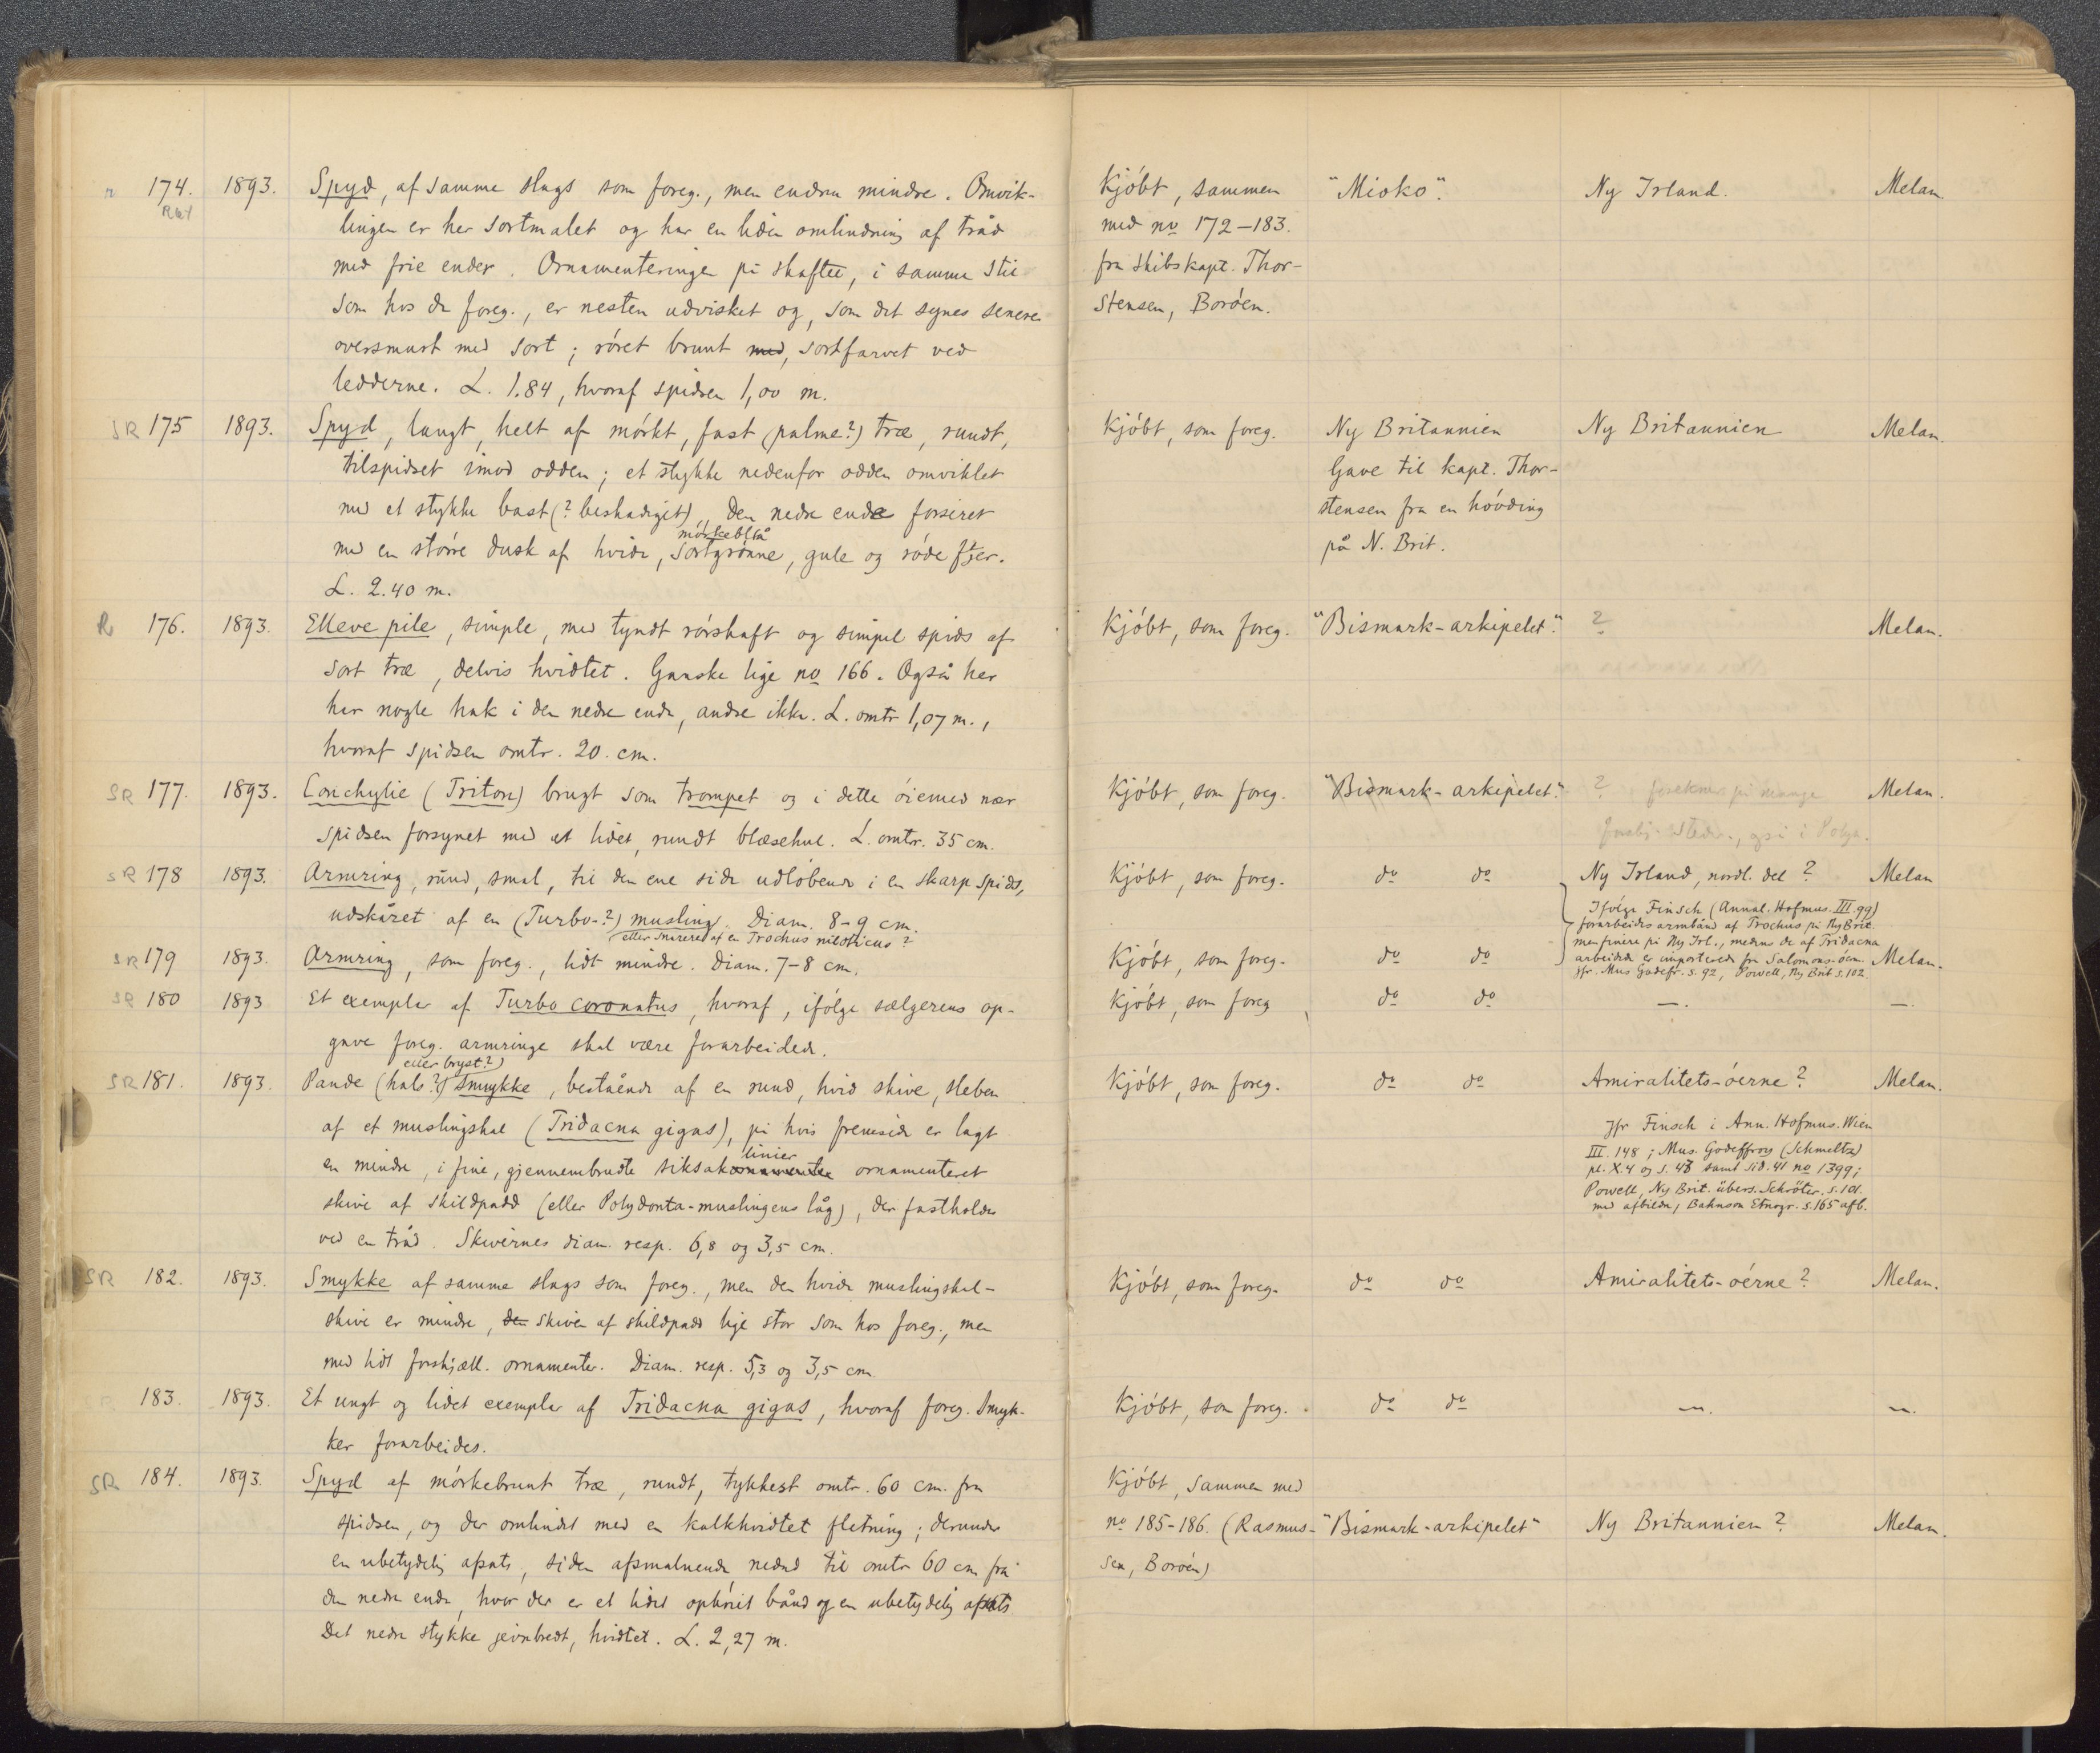 174. 1893. Spyd, af samme slags som foreg., men endnu mindre. Omvik- Kjóbt, sammen "Mioko". Ny Irland. Melan.
lingen er her sortmalet og har en liden omlindning af tråd med no 172–183.
med frie ender. Ornamenteringen på skaftet, i samme stil fra skibskapt. Thor-
som hos de foreg., er nesten udvisket og, som det synes senere stensen, Boróen.
oversmurt med sort; róret brunt med, sortfarvet ved
ledderne. L. 1.84, hvoraf spidsen 1,00 m.
SR 175 1893. Spyd, langt, helt af mórkt, fast (palme?) træ, rundt, Kjóbt, som foreg. Ny Britannien Ny Britannien Melan.
tilspidset imod odden; et stykke nedenfor odden omviklet Gave til kapt. Thor-
med et stykke bast (? beskadiget), den nedre ende forsiret stensen fra en hóvding
mórkeblå
med en stórre dusk af hvide, sortgrónne, gule og róde fjer. på N. Brit.
L. 2.40 m.
R 176. 1893. Elleve pile, simple, med tyndt rórskaft og simpel spids af Kjóbt, som foreg. "Bismark-arkipelet". ? Melan.
sort træ, delvis hvidtet. Ganske lige no 166. Også her
har nogle hak i den nedre ende, andre ikke. L. omtr 1,07 m.,
hvoraf spidsen omtr. 20. cm.
SR 177. 1893. Conchylie (Triton) brugt som trompet og i dette óiemed nær Kjóbt, som foreg. "Bismark-arkipelet". ? forekmer på mange Melan.
spidsen forsynet med et lidet, rundt blæsehul. L. omtr. 35 cm. forskj. steder., også i Polyn.
SR 178 1893. Armring, rund, smal, til den ene side udlóbende i en skarp spids, Kjóbt, som foreg. do do Ny Irland, nordl. del? Melan
udskåret af en (Turbo-?) musling. Diam. 8-9 cm. Ifólge Finsch (Annal. Hofmus. III. 99)
eller snarere af en Trochus niloticus? forarbeides armbånd af Trochus på Ny Brit.
men finere på Ny Irl., medens de af Tridacna
SR 179 1893. Armring, som foreg., lidt mindre. Diam. 7-8 cm. Kjóbt, som foreg. do do arbeidede er importerede fra Salomons-óen. Melan.
jfr. Mus Godefr. s. 92, Powell, Ny Brit s. 102.
SR 180 1893 Et exemplar af Turbo coronatus, hvoraf, ifólge sælgerens op- Kjóbt, som foreg do do —. —.
gave foreg. armringe skal være forarbeidede.
eller bryst?)
SR 181. 1893. Pande (hals?) smykke, bestående af en rund, hvid skive, sleben Kjóbt, som foreg. do do Amiralitets-óerne? Melan.
af et muslingskal (Tridacna gigas), på hvis fremside er lagt Jfr Finsch i Ann. Hofmus. Wien
linier
en mindre, i fine, gjennembrudte siksakornamenter ornamenteret III. 148; Mus. Godeffroy (Schmeltz)
pl. X.4 og s. 43 samt sid. 41 no 1399;
skive af skildpadd (eller Polydonta-muslingens låg), der fastholdes Powell, Ny Brit. übers. Schróter. s. 101.
med afbildn, Bahnson Etnogr. s. 165 afb.
ved en tråd. Skivernes diam. resp. 6,8 og 3,5 cm.
SR 182. 1893. Smykke af samme slags som foreg., men den hvide muslingskal- Kjóbt, som foreg. do do Amiralitets-óerne? Melan.
skive er mindre, den skiven af skildpadd lige stor som hos foreg., men
med lidt forskjæll. ornamenter. Diam. resp. 5,3 og 3,5 cm.
183. 1893. Et ungt og lidet exemplar af Tridacna gigas, hvoraf foreg. smyk- Kjóbt, som foreg. do do —. —.
ker forarbeides.
SR 184. 1893. Spyd af mórkebrunt træ, rundt, tykkest omtr. 60 cm. fra Kjóbt, sammen med
spidsen, og der omlindet med en kalkhvidtet fletning; derunder no 185-186. (Rasmus- "Bismark-arkipelet" Ny Britannien? Melan.
en ubetydelig afsats, siden afsmalnende nedad til omtr 60 cm fra sen, Boróen)
den nedre ende, hvor der er et lidet ophóiet bånd og en ubetydelig afsats
Det nedre stykke jevnbredt, hvidtet. L. 2,27 m.